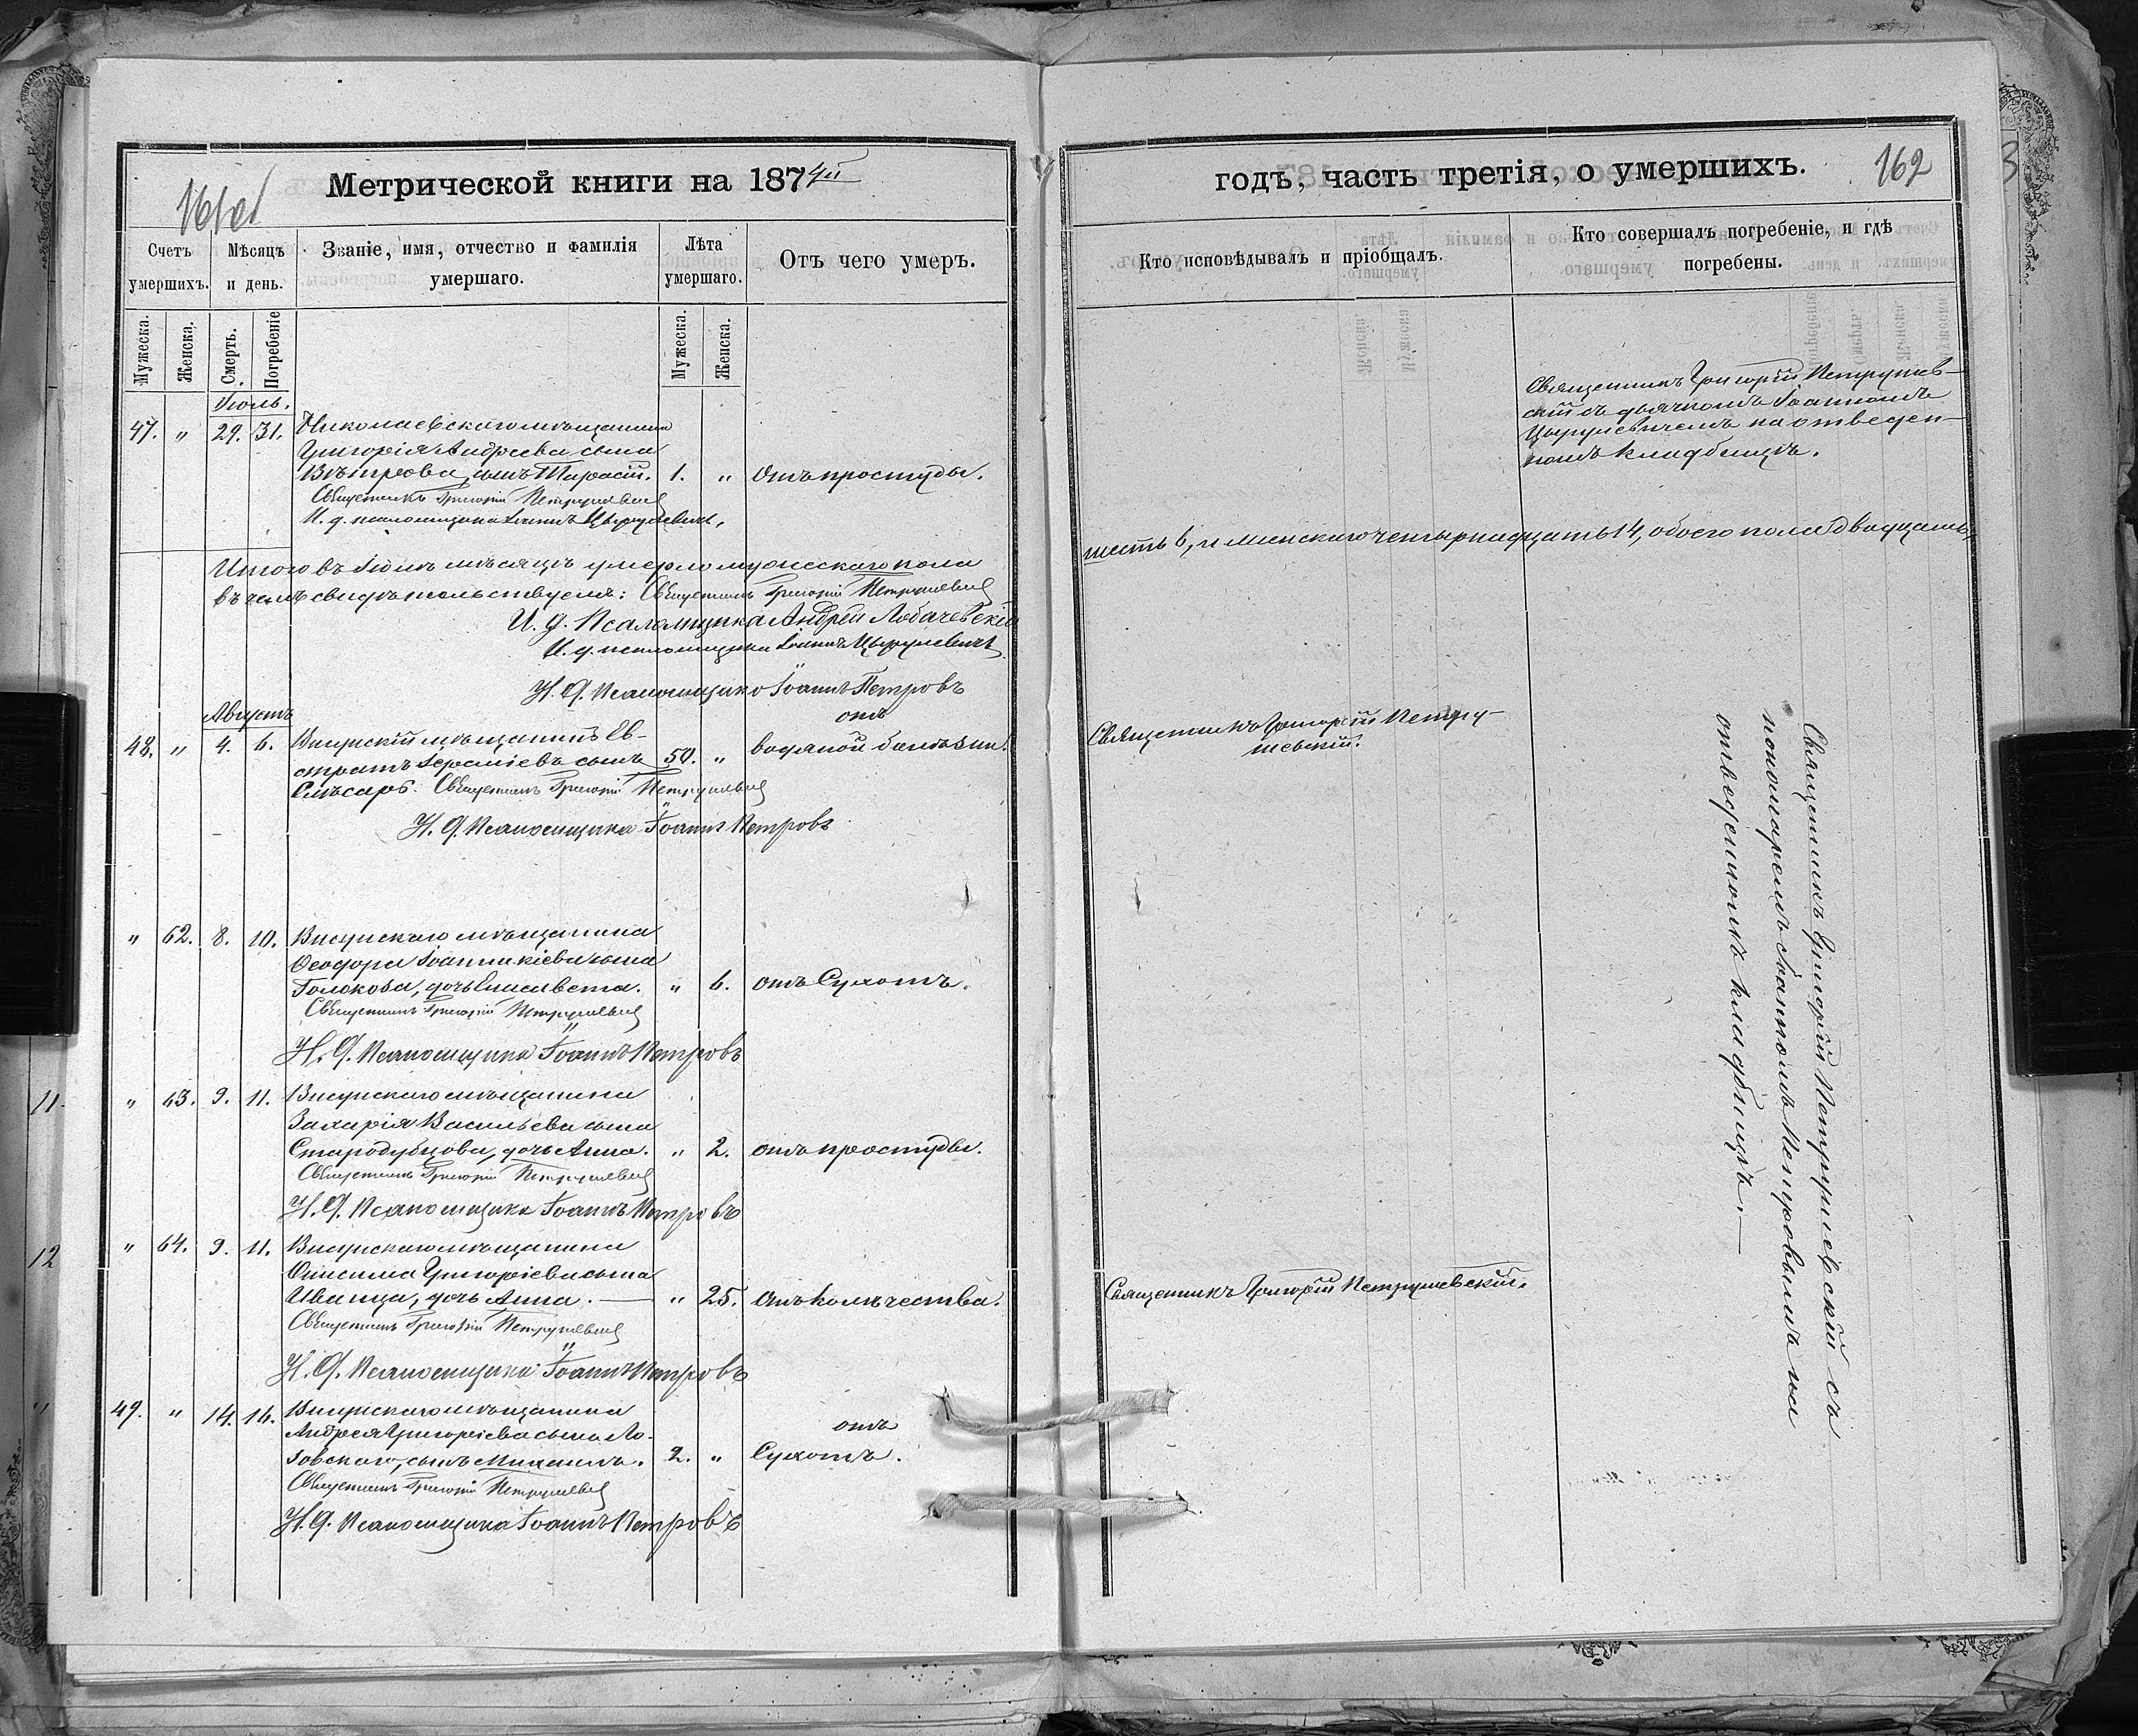 Метрической книги на 1874й
161об
Счетъ умершихъ.
Мѣсяцъ и день.
Званіе, имя, отчество и фамилія умершаго.
Лѣта умершаго.
Отъ чего умеръ.
Мужеска.
Женска.
Смерть.
Погребеніе
Мужеска.
Женска.
Іюль.
47. " 29. 31. Николаевскаго мѣщанина
Григорія Андреева сына
сынъ Тарасій. 1. " отъ простуды.
Священникъ Григорій Петрушевскій
И. д. псаломщика Іоаннъ Цырулевичъ.
Итого въ Іюлѣ мѣсяцѣ умерло мужескаго пола
въ чемъ свидѣтельствуемъ: Священникъ Григорій Петрушевскій
И. д. Псаломщика Андрей Лобачевскій
И. д. псаломщика Іоаннъ Цырулевичъ
И. д. Псаломщика Іоаннъ Петровъ
Августъ
48. " 4. 6. Висунскій мѣщанинъ Ев-
стратъ сынъ 50. " отъ водяной болѣзни.
Слѣсарь. Священникъ Григорій Петрушевскій
И. д. Псаломщика Іоаннъ Петровъ
" 62. 8. 10. Висунскаго мѣщанина
Ѳеодора Іоанникіева сына
Голокова, дочь Елисавета. " 6. отъ Сухотъ.
Священникъ Григорій Петрушевскій
И. д. Псаломщика Іоаннъ Петровъ
" 63. 9. 11. Висунскаго мѣщанина
Захарія Васильева сына
Стародубцова, дочь Анна. " 2. отъ простуды.
Священникъ Григорій Петрушевскій
И. д. Псаломщика Іоаннъ Петровъ
" 64. 9. 11. Висунскаго мѣщанина
Онисима Григоріева сына
Иванца, дочь Анна. — " 25. отъ колѣчества.
Священникъ Григорій Петрушевскій
И. д. Псаломщика Іоаннъ Петровъ
49. " 14. 16. Висунскаго мѣщанина
Андрея Григоріева сына Ло-
говскаго, сынъ Михаилъ. 2. " отъ Сухотъ.
Священникъ Григорій Петрушевскій
И. д. Псаломщика Іоаннъ Петровъ
11.
12
годъ, часть третія, о умершихъ.
162
3
Кто исповѣдывалъ и пріобщалъ.
Кто совершалъ погребеніе, и гдѣ погребены.
Священникъ Григорій Петрушев-
скій съ дьячкомъ Іоанномъ
Цырулевичемъ на отведен-
номъ кладбищѣ.
шесть 6, и женскаго четырнадцать 14, обоего пола двадцать,
Священникъ Григорій Петру-
шевскій.
Священникъ Григорій Петрушевскій съ
пономаремъ Іоанномъ Петровымъ на
отведенномъ кладбищѣ. —
Священникъ Григорій Петрушевскій.